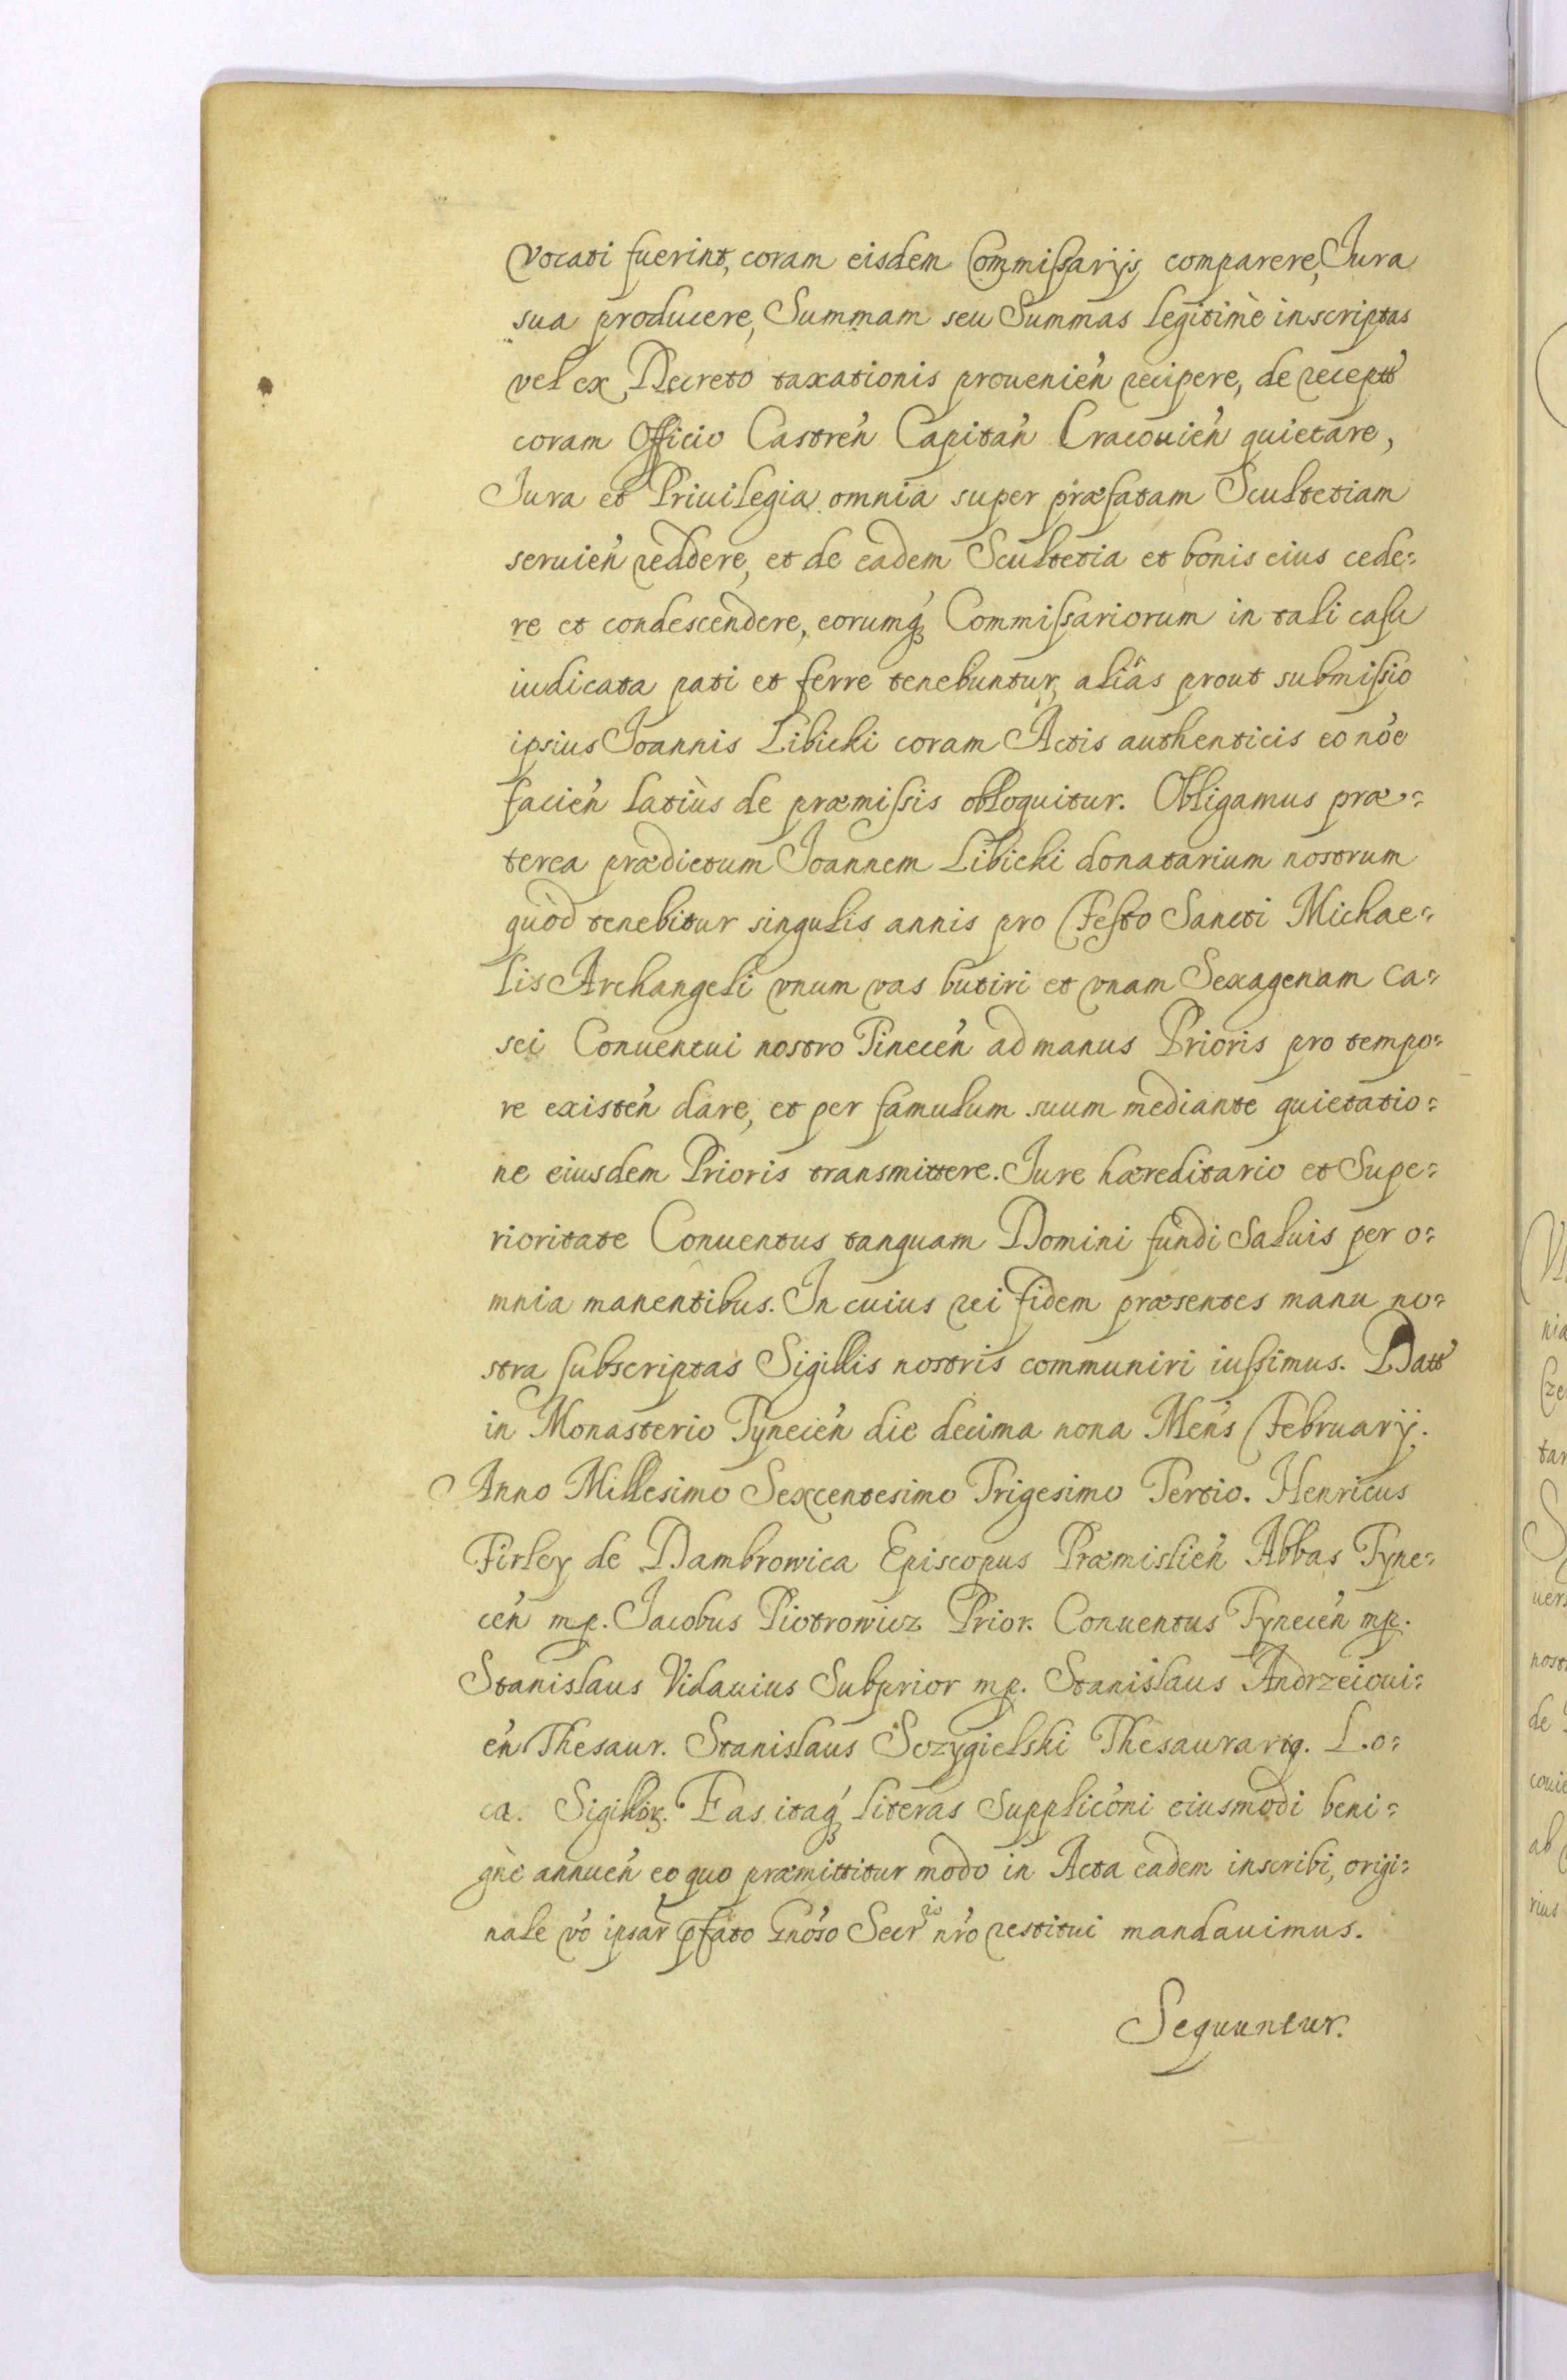 vocati fuerint, coram eisdem Commissarijs comparere, Jura
sua producere, Summam seu Summas legitimè inscriptas
vel ex Decreto taxationis prouenień recipere, de receptt
coram Officio Castreń Capitań Cracouień quietare,
Jura et Priuilegia omnia super præfatam Scultetiam
seruień reddere, et de eadem Scultetia et bonis eius cede=
re et condescendere, eorumq́ Commissariorum in tali casu
iudicata pati et ferre tenebuntur, aliâs prout submissio
ipsius Joannis Libicki coram Actis authenticis eo nóe
facień latiùs de præmissis obloquitur. Obligamus præ=
terea prædictum Joannem Libicki donatarium nostrum
quòd tenebitur singulis annis pro Festo Sancti Michae=
lis Archangeli vnum vas butiri et vnam Sexagenam ca=
sei Conuentui nostro Tineceń ad manus Prioris pro tempo=
re existeń dare, et per famulum suum mediante quietatio=
ne eiusdem Prioris transmittere. Jure hæreditario et Supe=
rioritate Conuentus tanquam Domini fundi Saluis per o=
mnia manentibus. In cuius rei fidem præsentes manu no=
stra subscriptas Sigillis nostris communiri iussimus. Datt
in Monasterio Tynecień die decima nona Meńs Februarij.
Anno Millesimo Sexcentesimo Trigesimo Tertio. Henricus
Firley de Dambrowica Episcopus Præmislień Abbas Tyne=
ceń mp. Jacobus Piotrowicz Prior. Conuentus Tynecień mp.
Stanislaus Vidauius Subprior mp. Stanislaus Andrzeioui=
eń Thesaur. Stanislaus Sczygielski Thesaurarig. Lo=
ca. Sigillor. Eas itaq́ literas Supplicóni eiusmodi beni=
gnè annueń eo quo præmittitur modo in Acta eadem inscribi, origi=
nale vó ipsar pfato Gnóso Secrio nró restitui mandauimus.
Sequuntur.